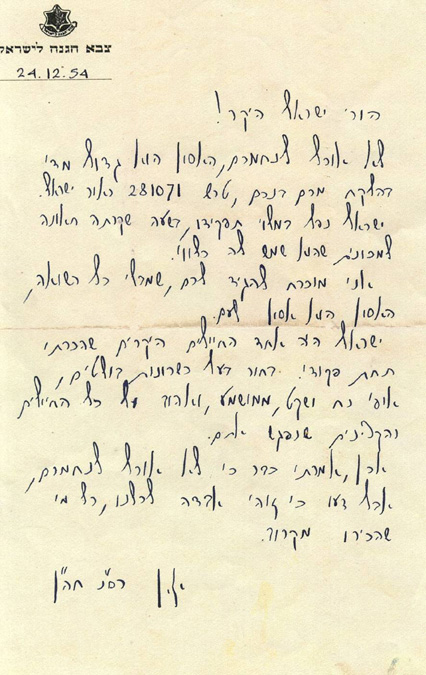 צבא הגנה לישראל
24.12.54
הורי ישראל היקר!
לא אוכל לנחמכם, האסון הוא גדול מדי
בהלקח מכם בנכם, טרש 281071 באור ישראל.
ישראל נפל במלוי תפקידו, בשעה שקרתה תאונה
למכונית שהוא שמש לה כלווי.
אני מוכרח להגיד לכם, שמבלי כל השואה,
האסון הוא אסון לעם.
ישראל היה אחד החיילים היקרים שהכרתי
תחת פקודי. בחור בעל כשרונות בולטים,
אופי נח ושקט, ממושמע, ואהוב על כל החיילים
והקצינים שנפגש אתם.
אכן, אמרתי כבר כי לא אוכל לנחמכם,
אבל דעו כי זוהי אבדה לכולנו, כל מי
שהכירו מקרוב.
רס"ן חה"ן